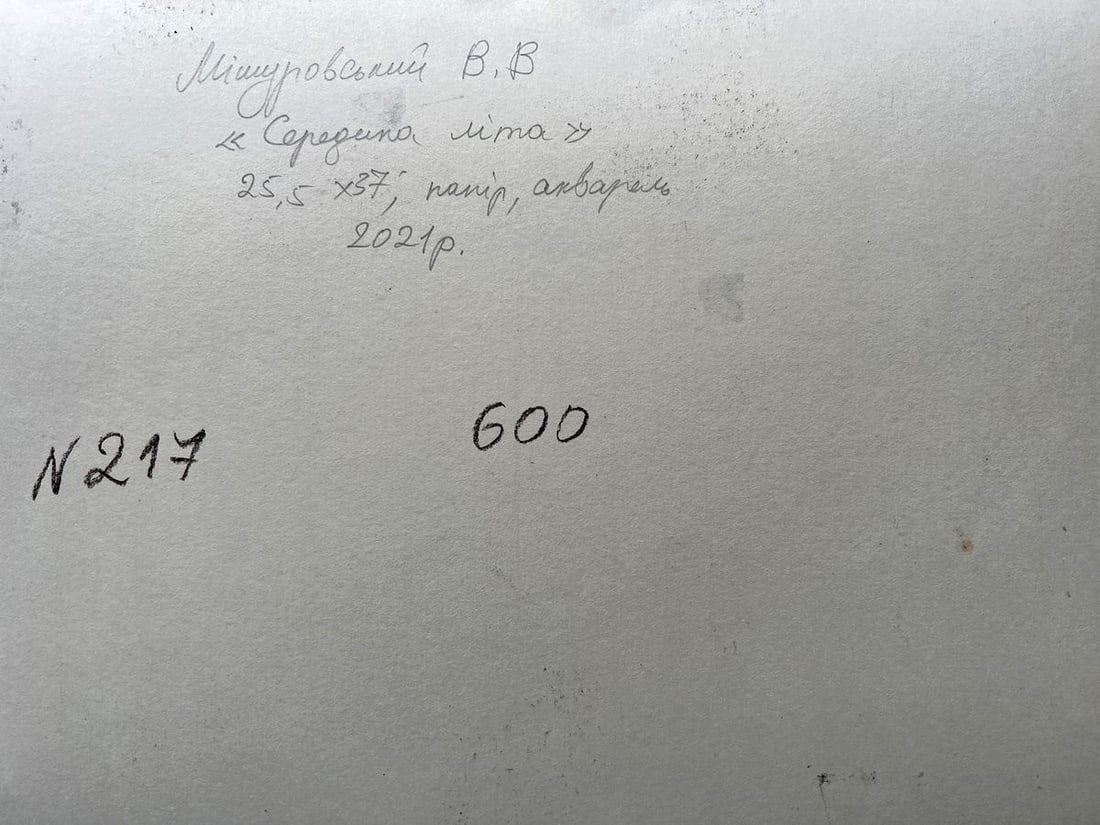 Мішуровський В.В
« Середина літа »
25,5 х37; папір, акварель
2021р.
N 217
600